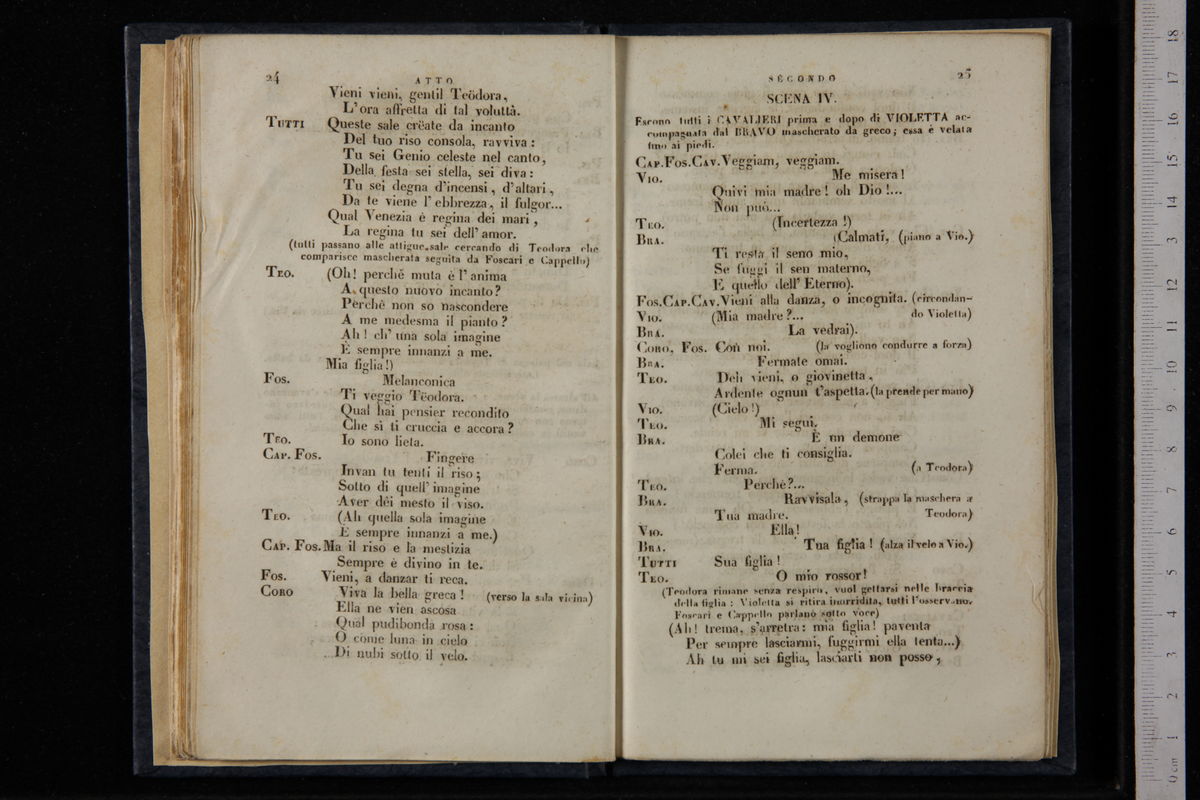 24
ATTO
Vieni vieni, gentil Teödora,
L'ora affretta di tal voluttà.
TUTTI Queste sale crëate da incanto
Del tuo riso consola, ravviva:
Tu sei Genio celeste nel canto,
Della festa sei stella, sei diva:
Tu sei degna d'incensi, d'altari,
Da te viene l'ebbrezza, il fulgor...
Qual Venezia è regina dei mari,
La regina tu sei dell'amor.
(tutti passano alle attigue sale cercando di Teodora che
comparisce mascherata seguita da Foscari e Cappello)
TEO. (Oh! perchè muta è l'anima
A questo nuovo incanto?
Perchè non so nascondere
A me medesma il pianto?
Ah! ch'una sola imagine
È sempre innanzi a me.
Mia figlia!)
FOS. Melanconica
Ti veggio Tëodora.
Qual hai pensier recondito
Che sì ti cruccia e accora?
TEO. Io sono lieta.
CAP. FOS. Fingere
Invan tu tenti il riso;
Sotto di quell'imagine
Aver dêi mesto il viso.
TEO. (Ah quella sola imagine
È sempre innanzi a me.)
CAP. FOS. Ma il riso e la mestizia
Sempre è divino in te.
FOS. Vieni, a danzar ti reca.
CORO Viva la bella greca! (verso la sala vicina)
Ella ne vien ascosa
Qual pudibonda rosa:
O come luna in cielo
Di nubi sotto il velo.
SECONDO
25
SCENA IV.
Escono tutti i CAVALIERI prima e dopo di VIOLETTA ac-
compagnata dal BRAVO mascherato da greco; essa è velata
fino ai piedi.
CAP. FOS. CAV. Veggiam, veggiam.
VIO. Me misera!
Quivi mia madre! oh Dio!...
Non può...
TEO. (Incertezza!)
BRA. (Calmati, (piano a Vio.)
Ti resta il seno mio,
Se fuggi il sen materno,
E quello dell'Eterno).
FOS. CAP. CAV. Vieni alla danza, o incognita. (circondan-
do Violetta)
VIO. (Mia madre?...
BRA. La vedrai).
CORO, FOS. Con noi. (la vogliono condurre a forza)
BRA. Fermate omai.
TEO. Deh vieni, o giovinetta,
Ardente ognun t'aspetta. (la prende per mano)
VIO. (Cielo!)
TEO. Mi segui.
BRA. È un demone
Colei che ti consiglia.
Ferma. (a Teodora)
TEO. Perchè?...
BRA. Ravvisala, (strappa la maschera a
Teodora)
Tua madre.
VIO. Ella!
BRA. Tua figlia! (alza il velo a Vio.)
TUTTI Sua figlia!
TEO. O mio rossor!
(Teodora rimane senza respiro, vuol gettarsi nelle braccia
della figlia: Violetta si ritira inorridita, tutti l'osservano.
Foscari e Cappello parlano sotto voce)
(Ah! trema, s'arretra: mia figlia! paventa
Per sempre lasciarmi, fuggirmi ella tenta...)
Ah tu mi sei figlia, lasciarti non posso,
18
17
16
15
14
13
12
11
10
9
8
7
6
5
4
3
2
1
0 cm